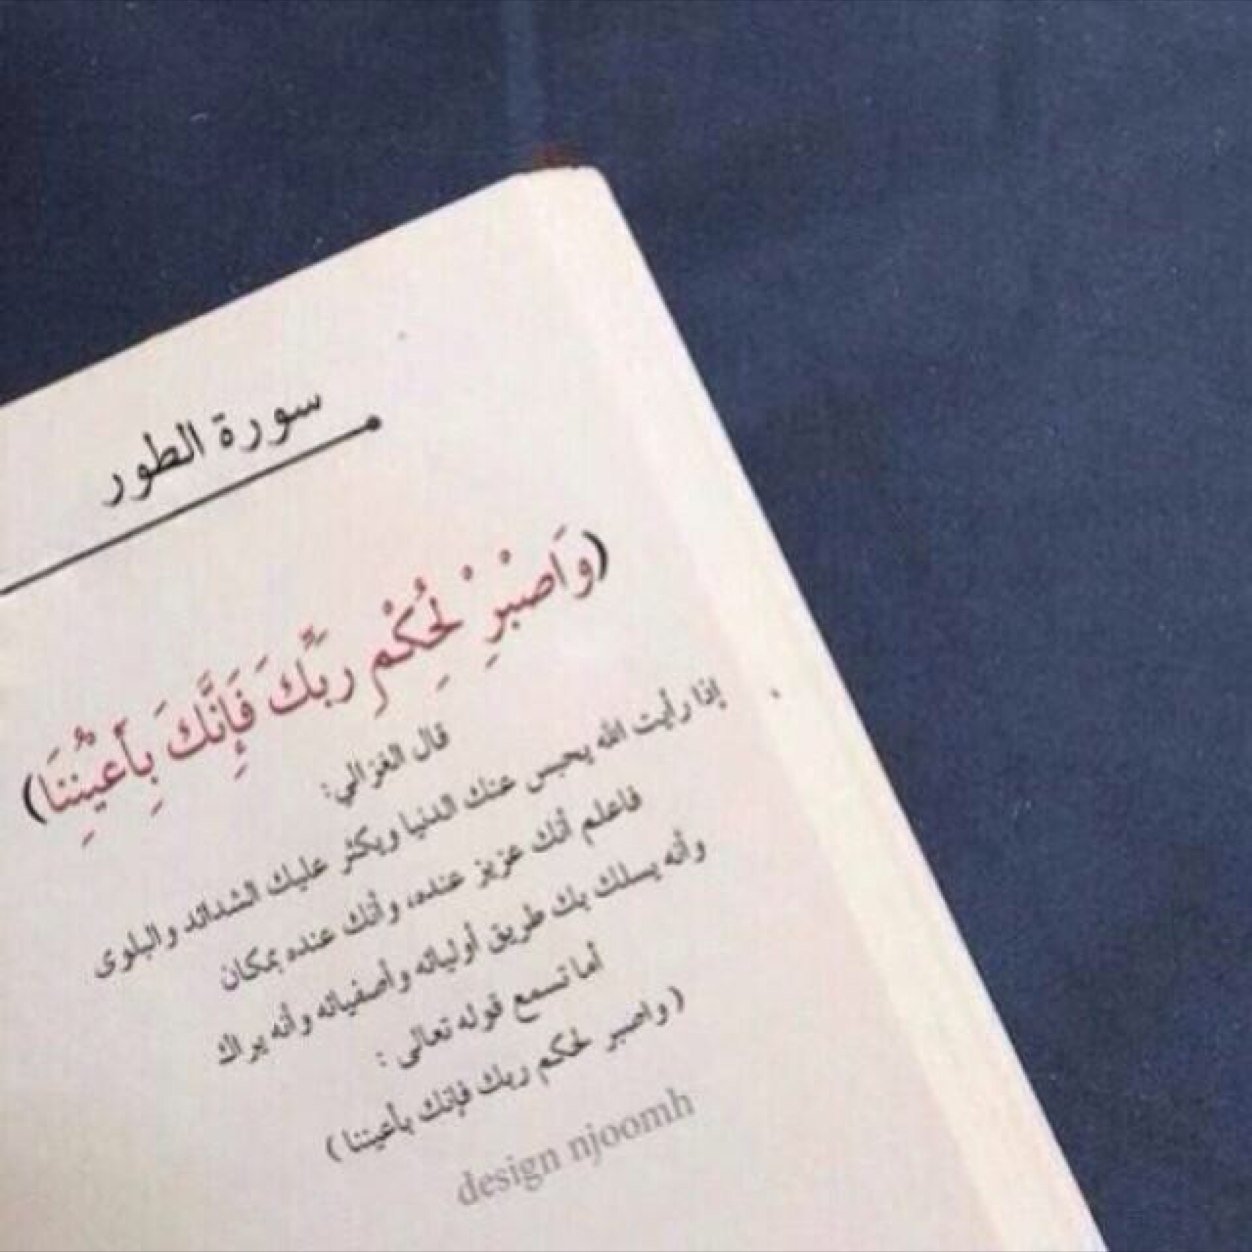 سورة الطور
(وَاصْبْرِ لِحُكْمِ رَبِّكَ فَإِنَّكَ بِأَعْيُنِنَا)
قال الغزالي:
إذا رأيت الله يحبس عنك الدنيا ويكثر عليك الشدائد والبلوى
فاعلم أنك عزيز عنده، وأنك عنده بمكان
وأنه يسلك بك طريق أوليائه وأصفيائه وأنه يراك
أما تسمع قوله تعالى :
( واصبر لحكم ربك فإنك بأعيننا )
design njoomh